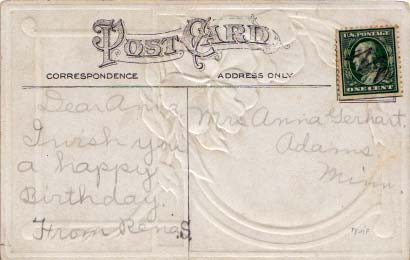 POST CARD
CORRESPONDENCE
ADDRESS ONLY
U.S. POSTAGE
ONE CENT
Dear Anna
I wish you
a happy
Birthday.
From Rena S.
Mrs Anna Gerhart.
Adams
Minn.